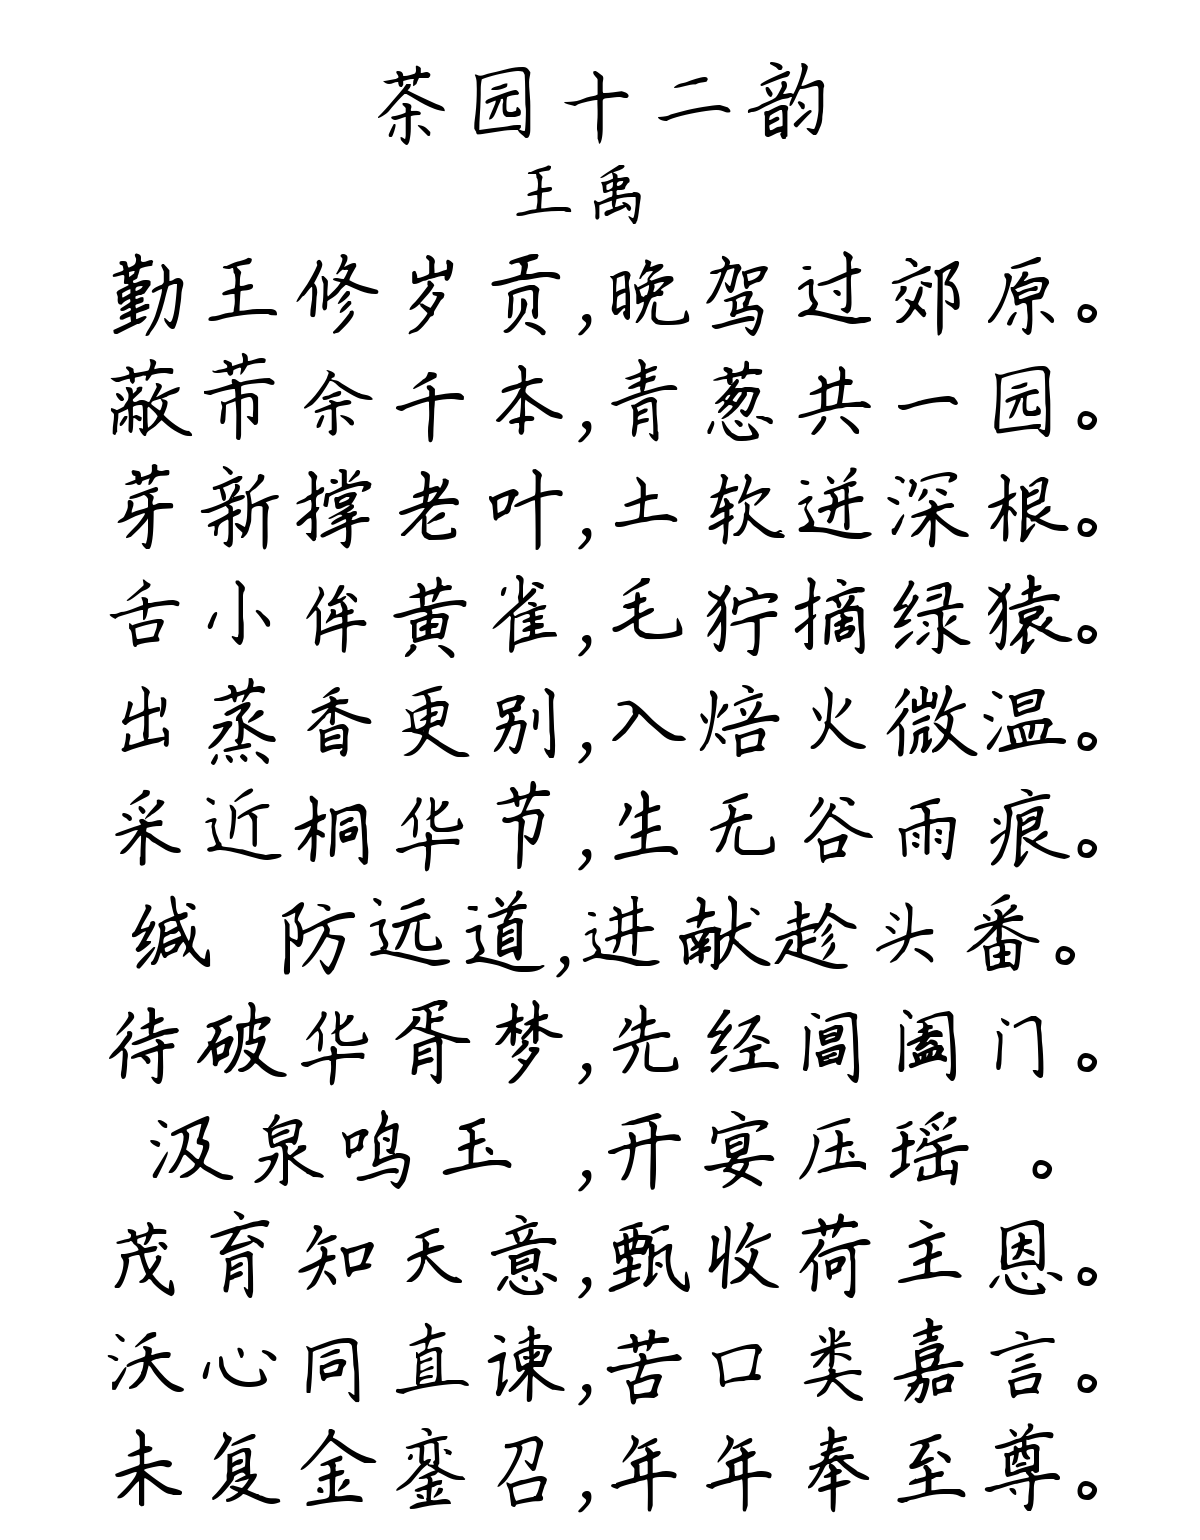 茶园十二韵
王禹
勤王修岁贡,晚驾过郊原。
蔽芾余千本,青葱共一园。
芽新撑老叶,土软迸深根。
舌小侔黄雀,毛狞摘绿猿。
出蒸香更别,入焙火微温。
采近桐华节,生无谷雨痕。
缄 防远道,进献趁头番。
待破华胥梦,先经阊阖门。
汲泉鸣玉 ,开宴压瑶 。
茂育知天意,甄收荷主恩。
沃心同直谏,苦口类嘉言。
未复金銮召,年年奉至尊。